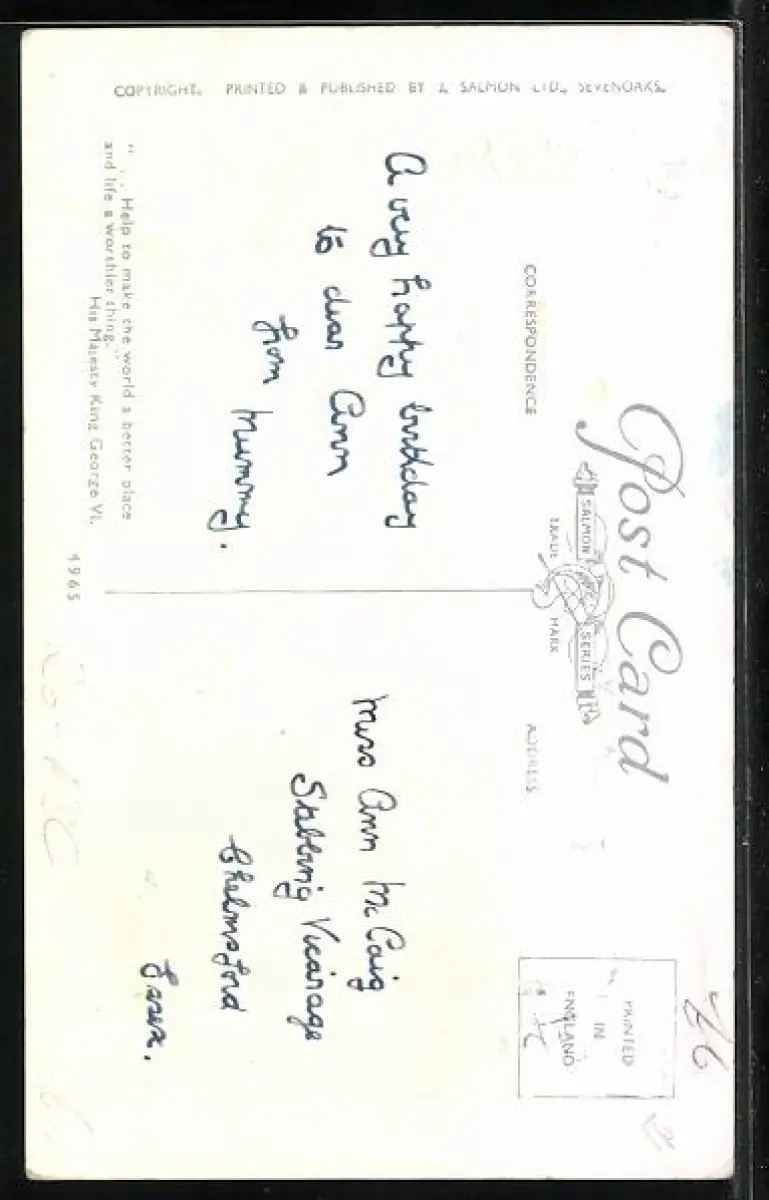 Post Card
SALMON SERIES
TRADE MARK
CORRESPONDENCE
ADDRESS
PRINTED
IN
ENGLAND
A very happy birthday
to dear Ann
from Mummy.
Miss Ann McCaig
Stebbing Vicarage
Chelmsford
Essex.
COPYRIGHT. PRINTED & PUBLISHED BY J. SALMON LTD., SEVENOAKS.
"... Help to make the world a better place
and life a worthier thing."
HIS MAJESTY KING GEORGE VI.
4965